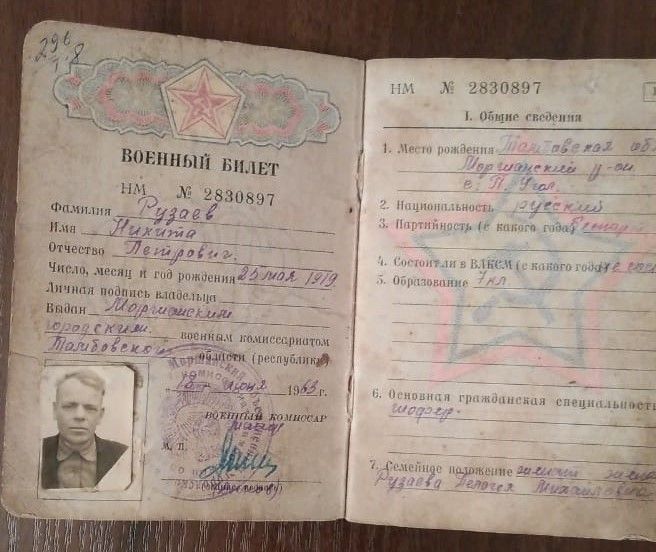 296
1.8
ВОЕННЫЙ БИЛЕТ
НМ № 2830897
Фамилия Рузаев
Имя Никита
Отчество Петрович.
Число, месяц и год рождения 25 мая 1919
Личная подпись владельца
Выдан Моршанским
городским военным комиссариатом
Тамбовской области (республики)
июня 1963 г.
ВОЕННЫЙ КОМИССАР
М. П.
НМ № 2830897
I. Общие сведения
1. Место рождения Тамбовская об
Моршанский р-он
с. П. Угол.
2. Национальность русский
3. Партийность (с какого года) беспар
4. Состоит ли в ВЛКСМ (с какого года)
5. Образование 7 кл
6. Основная гражданская специальность
шофер.
7. Семейное положение жена
Рузаева Пелагея Михайловна